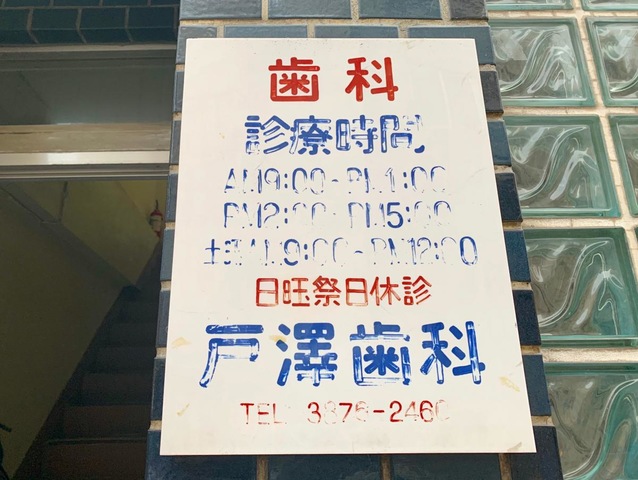 歯科
診療時間
AM9:00-PM1:00
PM2:00-PM5:00
土曜AM9:00-PM2:00
日旺祭日休診
戸澤歯科
TEL 3876-2460